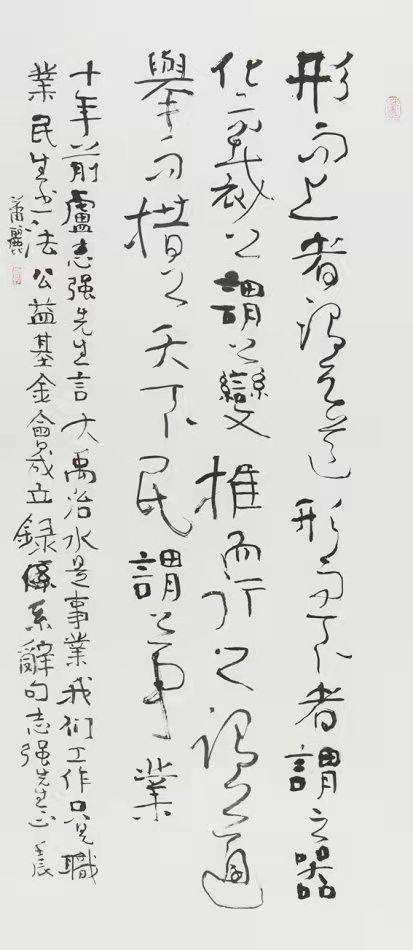 形而上者謂之道形而下者謂之器
化而裁之謂之變推而行之謂之通
舉而措之天下民謂之事業
十年前盧志强先生言大禹治水是事業我们工作只是職
業民生书法公益基金會成立録系辭句志强先生正 壬辰
蕭麗